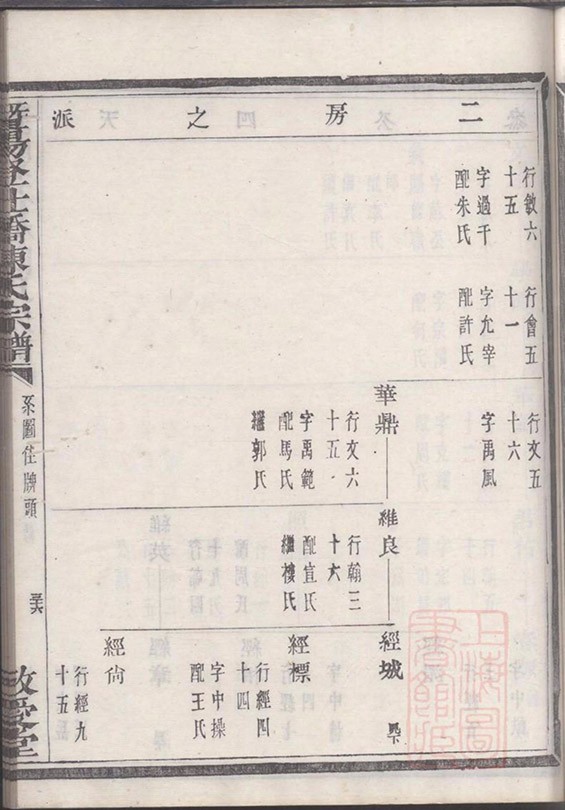 二房之派
行敘六
十五
字過千
配朱氏
行會五
十一
字允宰
配許氏
行文五
十六
字禹風
華鼎
行文六
十五
字禹範
配馬氏
繼郭氏
維良
行翰三
十六
配宣氏
繼樓氏
經城
經標
行經四
十四
字中操
配王氏
經尚
行經九
十五
陳氏宗譜
系圖住牌頭
敬愛堂
上海圖書館藏